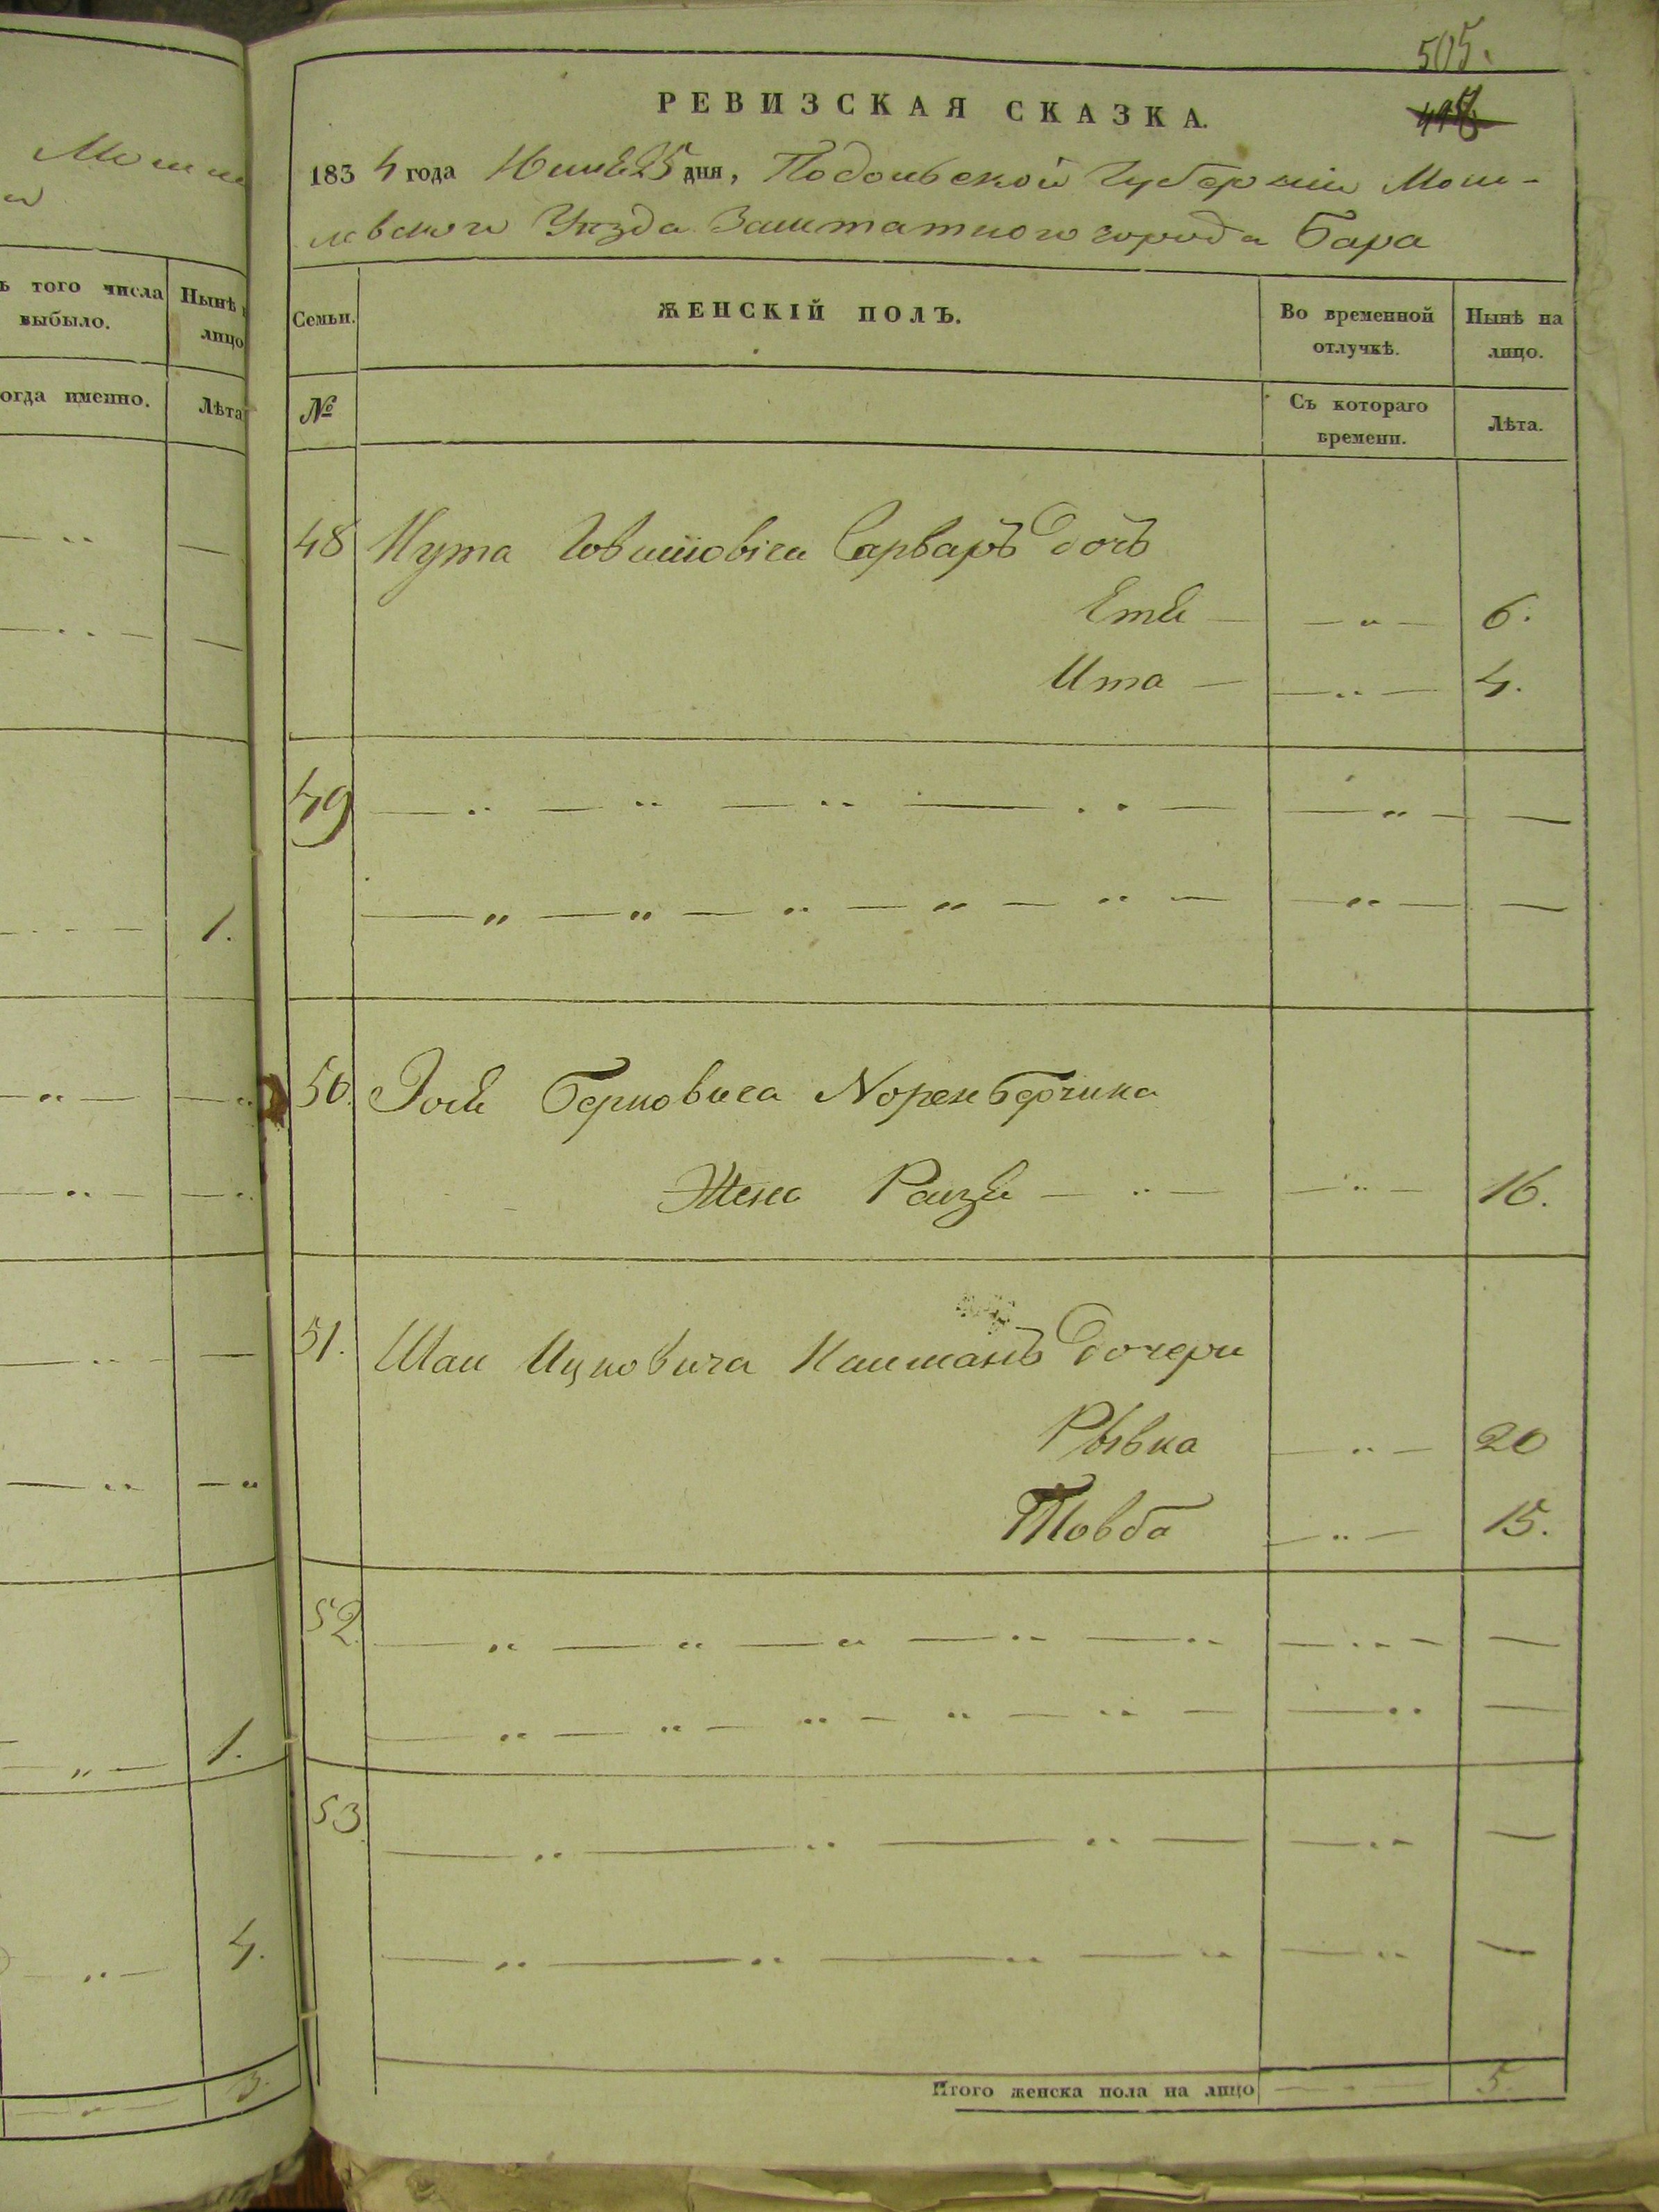 Моги
ъ того числа
выбыло.
Нынѣ
лицо
огда именно.
Лѣта
1.
1.
4.
3.
505.
РЕВИЗСКАЯ СКАЗКА.
1834 года Июня 25 дня, Подольской Губернии Моги-
левского Уѣзда Заштатного города Бара
Семьи.
ЖЕНСКІЙ ПОЛЪ.
Во временной
отлучкѣ.
Нынѣ на
лицо.
№
Съ котораго
времени.
Лѣта.
48 Нута Сарваръ дочъ
Етя — — „ — 6.
Ита — — „ — 4.
49 — „ — „ — „ — „ — — „ — —
— „ — „ — „ — „ — „ — — „ — —
50. Берковича
Жена Раизя — „ — — „ — 16.
51. Шаи Ицковича дочери
Рывка — „ — 20
Товба — „ — 15.
52. — „ — „ — „ — „ — „ — „ — —
— „ — „ — „ — „ — „ — — „ —
53. — „ — „ — „ — — „ —
— „ — „ — „ — „ — „ —
Итого женска пола на лицо — „ — 5.